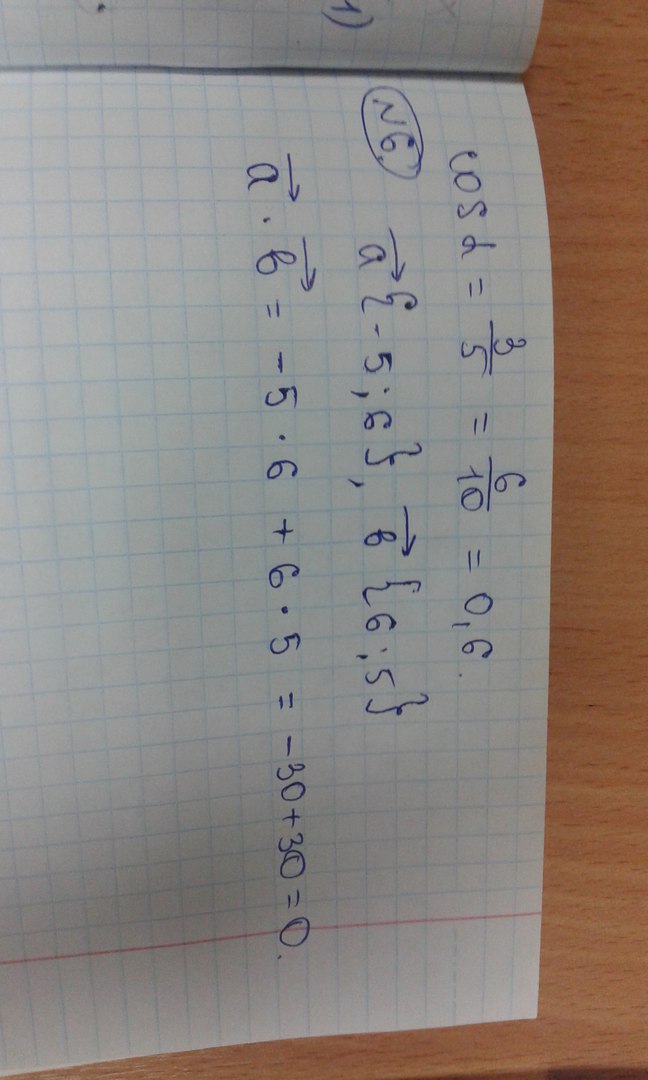 1)
cos α = 3/5 = 6/10 = 0,6.
№6. a⃗ {-5;6}, b⃗ {6;5}
a⃗ · b⃗ = -5 · 6 + 6 · 5 = -30+30=0.